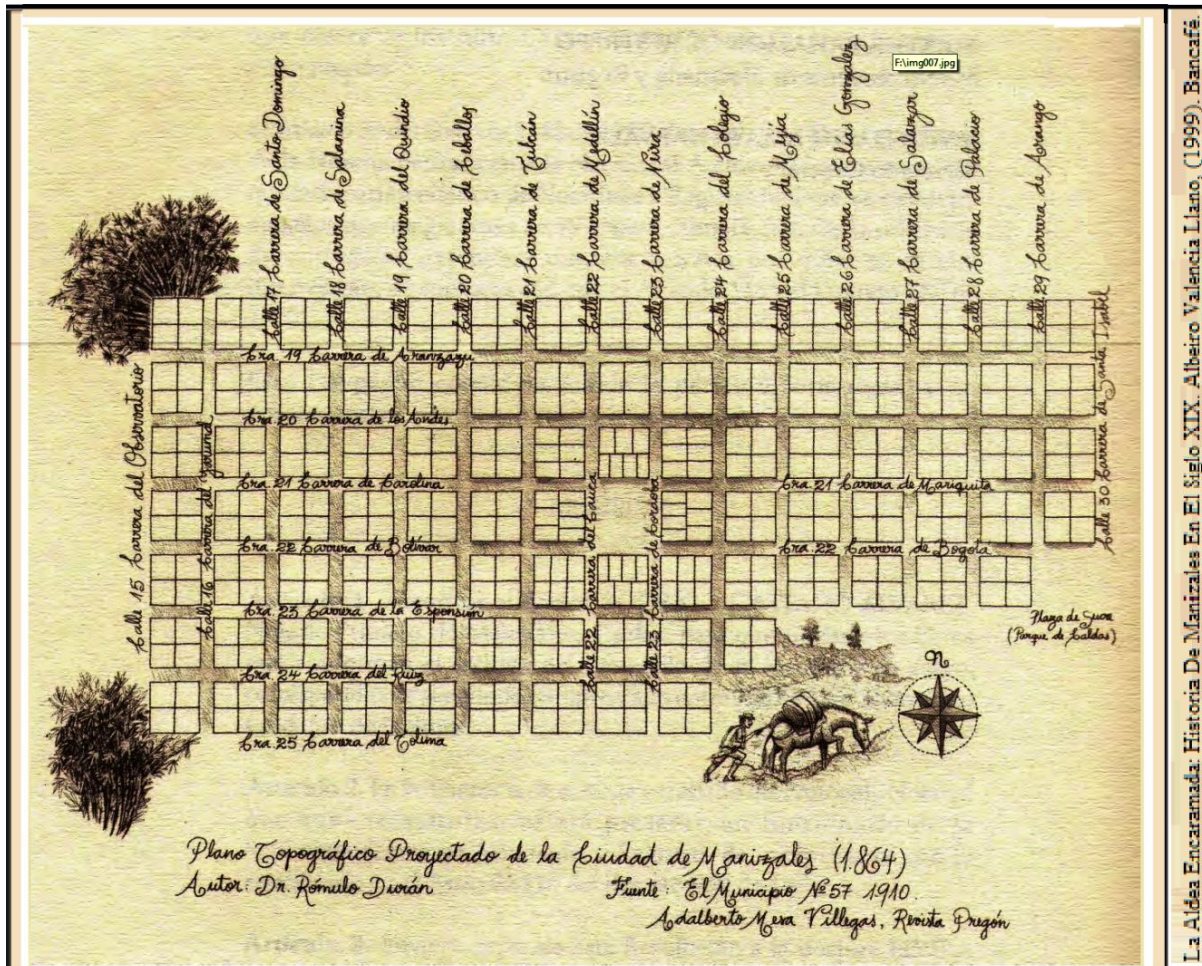 F:\img007.jpg
Calle 17 Carrera de Santo Domingo
Calle 18 Carrera de Salamina
Calle 19 Carrera del Quindio
Calle 20 Carrera de Ceballos
Calle 21 Carrera de Tulcán
Calle 22 Carrera de Medellín
Calle 23 Carrera de Neira
Calle 24 Carrera del Colegio
Calle 25 Carrera de Mejía
Calle 26 Carrera de Elías Gonzalez
Calle 27 Carrera de Salazar
Calle 28 Carrera de Palacio
Calle 29 Carrera de Arango
Calle 30 Carrera de Santa Isabel
Calle 15 Carrera del Observatorio
Calle 16 Carrera del
Cra. 19 Carrera de Aranzazu
Cra. 20 Carrera de los Andes
Cra. 21 Carrera de Carolina
Cra. 21 Carrera de Mariquita
Cra. 22 Carrera de Bolívar
Cra. 22 Carrera de Bogotá
Cra. 23 Carrera de la Esponsión
Cra. 24 Carrera del Ruiz
Cra. 25 Carrera del Tolima
Calle 22 Carrera del Cauca
Calle 23 Carrera de Córdova
Plaza de Sucre
(Parque de Caldas)
N
Plano Topográfico Proyectado de la Ciudad de Manizales (1.864)
Autor: Dr. Rómulo Durán
Fuente: El Municipio Nº 57 1910.
Adalberto Mesa Villegas, Revista Pregón
La Aldea Encaramada: Historia De Manizales En El Siglo XIX. Albeiro Valencia Llano, (1999). Bancafé.